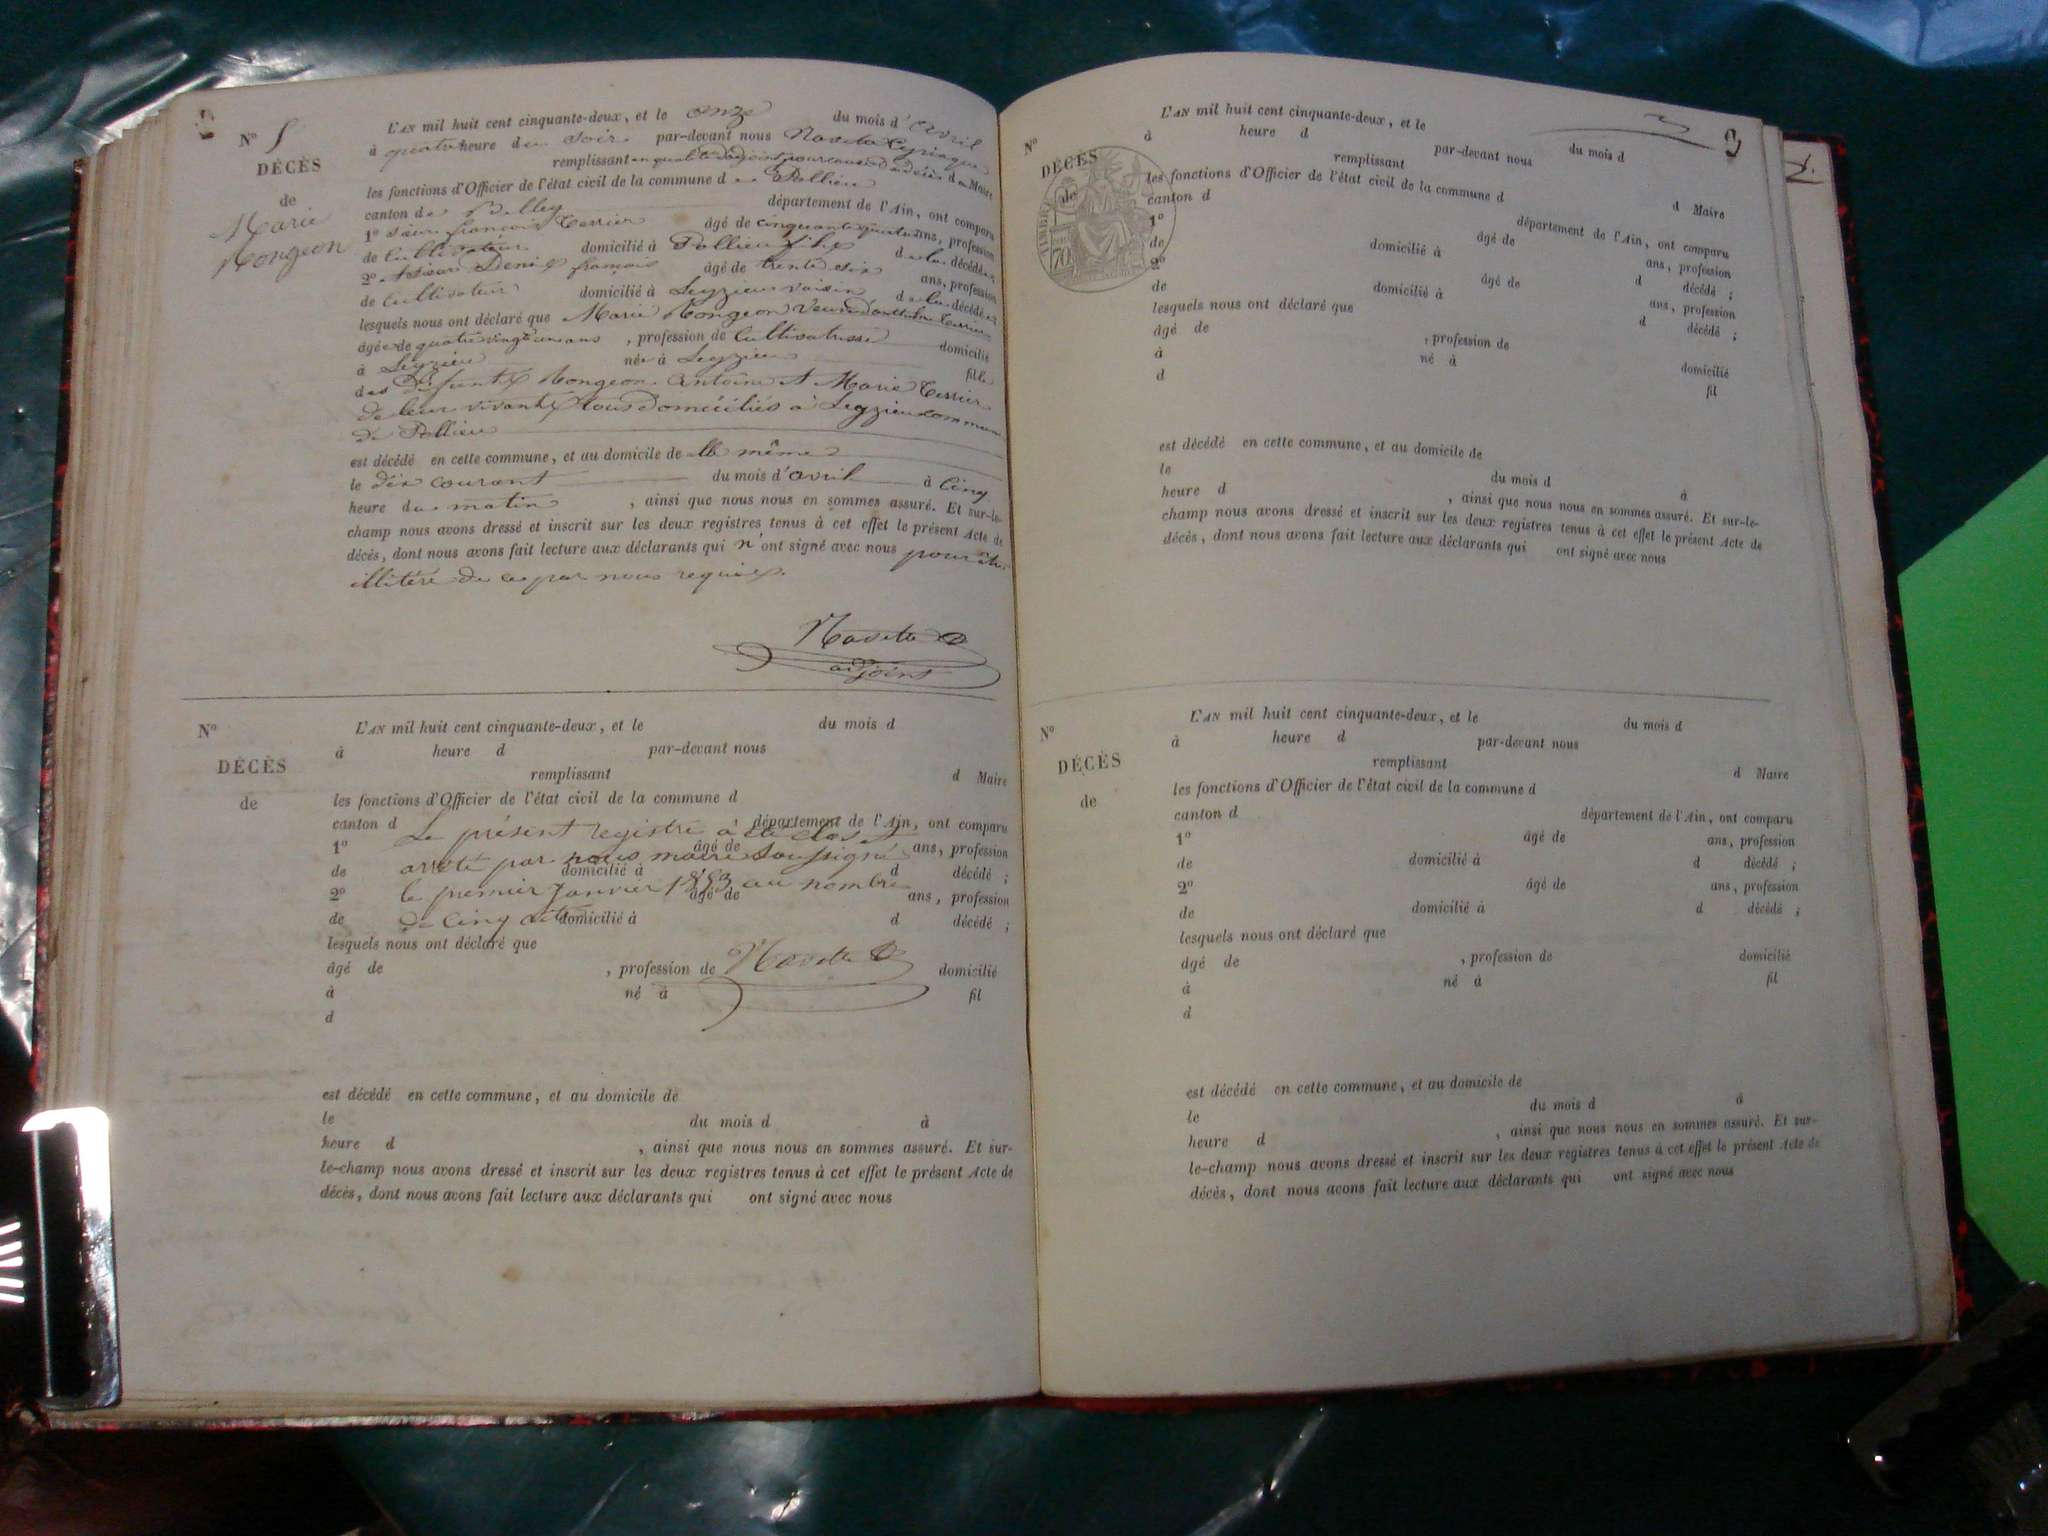 N° 5
DÉCÈS
de
Marie
Mongeon
L'AN mil huit cent cinquante-deux, et le onze du mois d'avril
à quatre heure du soir par-devant nous
remplissant en qualité d'adjoint pour cause de décès du Maire
les fonctions d'Officier de l'état civil de la commune de Pollieu
canton de Belley département de l'Ain, ont comparu
1° Sieur françois Terrier âgé de cinquante quatre ans, profession
de Cultivateur domicilié à Pollieu fils de la décédée
2° Denis françois âgé de trente six ans, profession
de Cultivateur domicilié à Leyzieu voisin de la décédée
lesquels nous ont déclaré que Marie Mongeon veuve d'anthelme Terrier
âgée de quatre vingt un ans, profession de Cultivatrisse domicilié
à Leyzieu née à Leyzieu fille
des défunts Mongeon Antoine et Marie Terrier
de leur vivant tous domiciliés à Leyzieu commune
de Pollieu
est décédé en cette commune, et au domicile de elle même
le dix courant du mois d'avril à cinq
heure du matin, ainsi que nous nous en sommes assuré. Et sur-le-
champ nous avons dressé et inscrit sur les deux registres tenus à cet effet le présent Acte de
décès, dont nous avons fait lecture aux déclarants qui n'ont signé avec nous pour être
illitéré de ce par nous requis.
adjoint
N°
DÉCÈS
de
L'AN mil huit cent cinquante-deux, et le du mois d
à heure d par-devant nous
remplissant d Maire
les fonctions d'Officier de l'état civil de la commune d
canton d département de l'Ain, ont comparu
Le présent registre à été clos et
1° âgé de ans, profession
arrêté par nous maire soussigné
de domicilié à d décédé ;
le premier janvier 1853 au nombre
2° âgé de ans, profession
de cinq actes
de domicilié à d décédé ;
lesquels nous ont déclaré que
âgé de , profession de domicilié
à né à fil
d
est décédé en cette commune, et au domicile de
le du mois d à
heure d , ainsi que nous nous en sommes assuré. Et sur-
le-champ nous avons dressé et inscrit sur les deux registres tenus à cet effet le présent Acte de
décès, dont nous avons fait lecture aux déclarants qui ont signé avec nous
N°
DÉCÈS
de
TIMBRE
70
L'AN mil huit cent cinquante-deux, et le du mois d
à heure d par-devant nous
remplissant d Maire
les fonctions d'Officier de l'état civil de la commune d
canton d département de l'Ain, ont comparu
1° âgé de ans, profession
de domicilié à d décédé ;
2° âgé de ans, profession
de domicilié à d décédé ;
lesquels nous ont déclaré que
âgé de , profession de domicilié
à né à fil
d
est décédé en cette commune, et au domicile de
le du mois d à
heure d , ainsi que nous nous en sommes assuré. Et sur-le-
champ nous avons dressé et inscrit sur les deux registres tenus à cet effet le présent Acte de
décès, dont nous avons fait lecture aux déclarants qui ont signé avec nous
N°
DÉCÈS
de
L'AN mil huit cent cinquante-deux, et le du mois d
à heure d par-devant nous
remplissant d Maire
les fonctions d'Officier de l'état civil de la commune d
canton d département de l'Ain, ont comparu
1° âgé de ans, profession
de domicilié à d décédé ;
2° âgé de ans, profession
de domicilié à d décédé ;
lesquels nous ont déclaré que
âgé de , profession de domicilié
à né à fil
d
est décédé en cette commune, et au domicile de
le du mois d à
heure d , ainsi que nous nous en sommes assuré. Et sur-
le-champ nous avons dressé et inscrit sur les deux registres tenus à cet effet le présent Acte de
décès, dont nous avons fait lecture aux déclarants qui ont signé avec nous